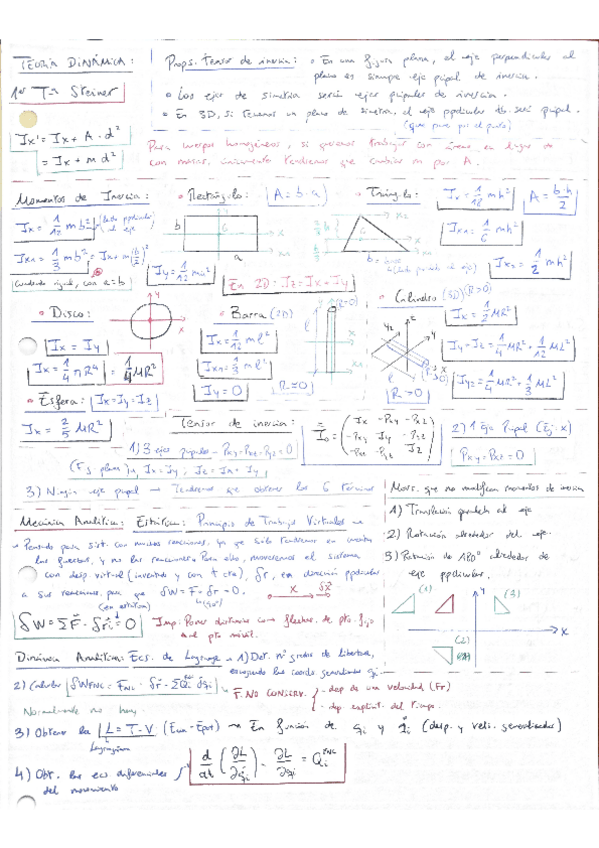 TEORÍA DINÁMICA:
1er Tª Steiner
Ix' = Ix + A·d²
= Ix + m d²
Props. tensor de inercia: • En una figura plana, el eje perpendicular al
plano es siempre eje ppal de inercia.
• Los ejes de simetría serán ejes ppales de inercia.
• En 3D, si tenemos un plano de simetría, el eje ppdicular tb. será ppal.
(que pase por el punto)
Para cuerpos homogéneos, si queremos trabajar con áreas en lugar de
con masas, únicamente tendremos que cambiar m por A.
Momentos de Inercia:
Ix = 1/12 mb²
Ix₁ = 1/3 mb² = Ix + m(b/2)²
Cuadrado igual, con a=b
• Rectángulo: A = b·a
b
G
a
x
x₁
Iy = 1/12 ma²
En 2D: Iz = Ix + Iy
• Triángulo:
Ix = 1/18 mh²
A = b·h/2
Ix₁ = 1/6 mh²
Ix₂ = 1/2 mh²
G
b = base
• Disco:
y
x
Ix = Iy
Ix = 1/4 πR⁴ = 1/4 MR²
• Barra (2D)
Ix = 1/12 ml²
Ix₁ = 1/3 ml²
Iy = 0
R≃0
l
• Cilindro (3D) (R>0)
Ix = 1/2 MR²
Iy = Iz = 1/4 MR² + 1/12 ML²
Iy₂ = 1/4 MR² + 1/3 ML²
R>0
• Esfera: Ix = Iy = Iz
Ix = 2/5 MR²
Tensor de inercia:
I₀ = (Ix -Pxy -Pxz
-Pxy Iy -Pyz
-Pxz -Pyz Iz)
1) 3 ejes ppales → Pxy = Pxz = Pyz = 0
2) 1 Eje Ppal (Ej: x)
Pxy = Pxz = 0
3) Ningún eje ppal → Tendremos que obtener los 6 términos
Movs. que no modifican momentos de inercia
1) Translación paralela al eje
2) Rotación alrededor del eje.
3) Rotación de 180º alrededor de
eje ppdicular.
(1)
(3)
(2)
y
x
Mecánica Analítica: Estática: Principio de Trabajos Virtuales
Pensado para sist. con muchas reacciones, ya que solo tendremos en cuenta
las fuerzas, y no las reacciones. Para ello, moveremos el sistema
con desp. virtual (inventado y con t cte), δr, en dirección ppdicular
a sus reacciones, para que δW = F·δr = 0
x
δx
(en estática)
δW = ΣF·δr = 0
Imp: Poner distancias como flechas de pto. fijo
a pto móvil.
Dinámica Analítica: Ecs. de Lagrange → 1) Det. nº grados de libertad,
escogiendo las coords generalizadas qi
2) Calcular δW FNC = FNC·δr = ΣQi δqi
F. NO CONSERV.
- dep de una velocidad (Fr)
- dep explícit. del tiempo.
Normalmente no hay
3) Obtener la L = T - V (Ecin - Epot) → En función de qi y q̇i (desp. y vels. generalizadas)
Lagrangiana
4) Obt. las ecs diferenciales
del movimiento
d/dt (∂L/∂q̇i) - ∂L/∂qi = Qi ^FNC